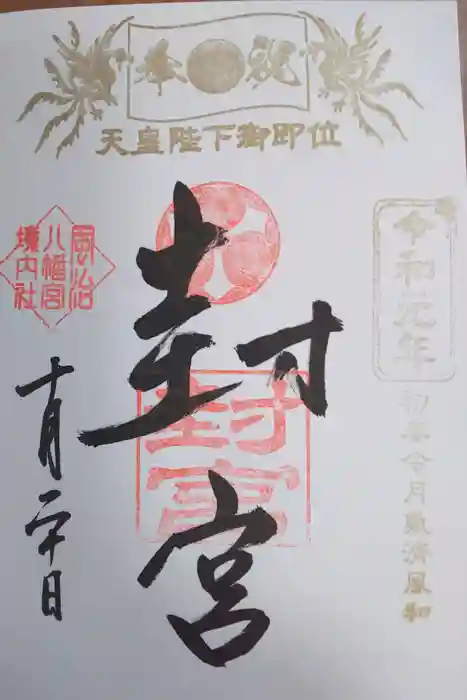 奉祝
天皇陛下御即位
令和元年
初春令月氣淑風和
封宮
封宮
風治
八幡宮
境内社
十月二十日